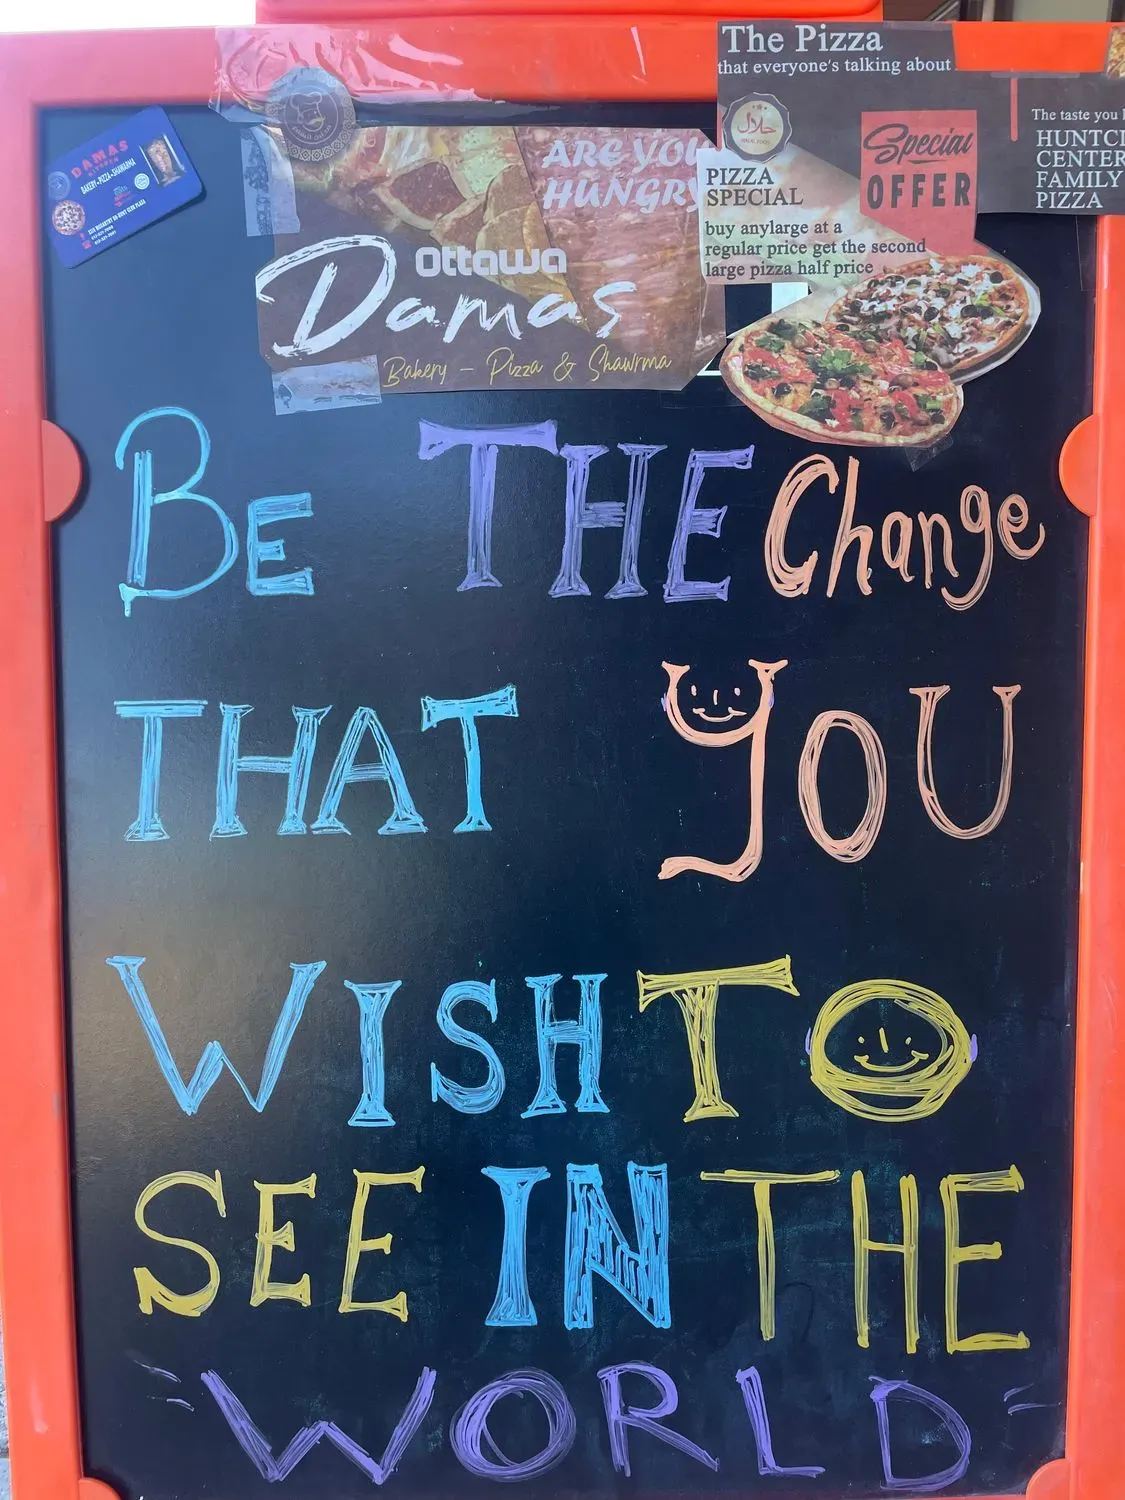 The Pizza
that everyone's talking about
حلال
HALAL FOOD
Special
OFFER
The taste you
HUNTCL
CENTER
FAMILY
PIZZA
PIZZA
SPECIAL
buy anylarge at a
regular price get the second
large pizza half price
DAMAS
BAKERY•PIZZA•SHAWARMA
ARE YOU
HUNGRY
Ottawa
Damas
Bakery - Pizza & Shawrma
BE THE Change
THAT YOU
WISH TO
SEE IN THE
WORLD